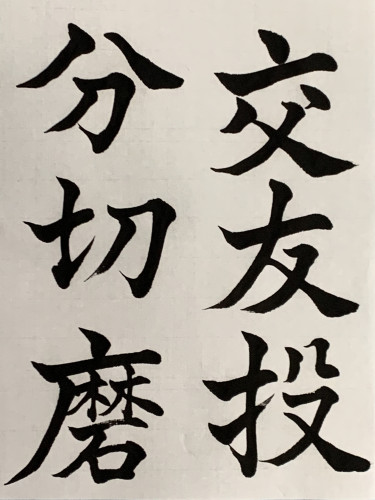 交友投
分切磨